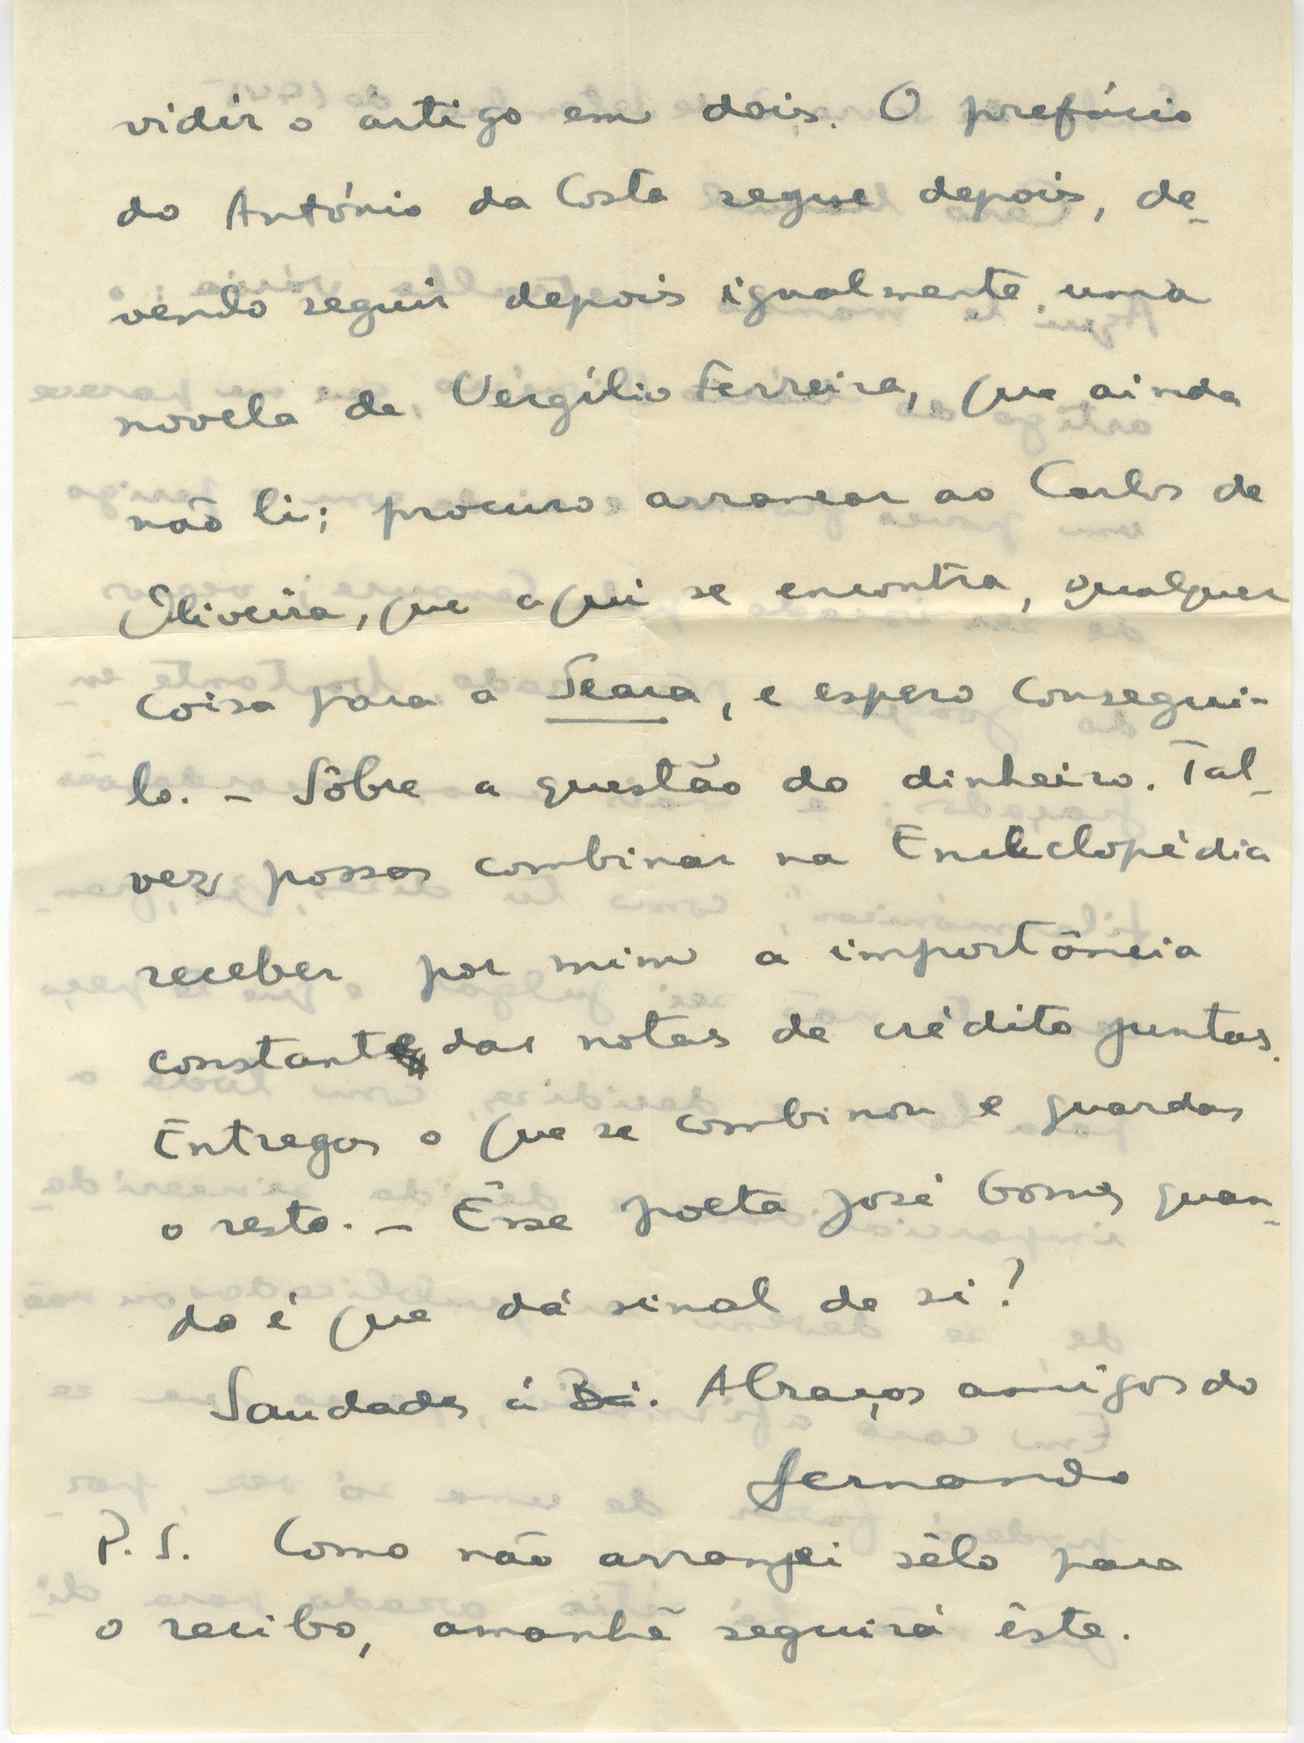 vidir o artigo em dois. O prefácio
do António da Costa segue depois, de-
vendo seguir depois igualmente uma
novela de Vergílio Ferreira, que ainda
não li; procuro arrancar ao Carlos de
Oliveira, que aqui se encontra, qualquer
coisa para a Seara, e espero consegui-
lo. - Sôbre a questão do dinheiro. Tal-
vez possas combinar na Enciclopédia
receber por mim a importância
constante das notas de crédito juntas.
Entregas o que se combinou e guardas
o resto. - Êsse poeta José Gomes quan-
do é que dá sinal de si?
Saudades à Bé. Abraços amigos do
Fernando
P.S. Como não arranjei sêlo para
o recibo, amanhã seguirá êste.